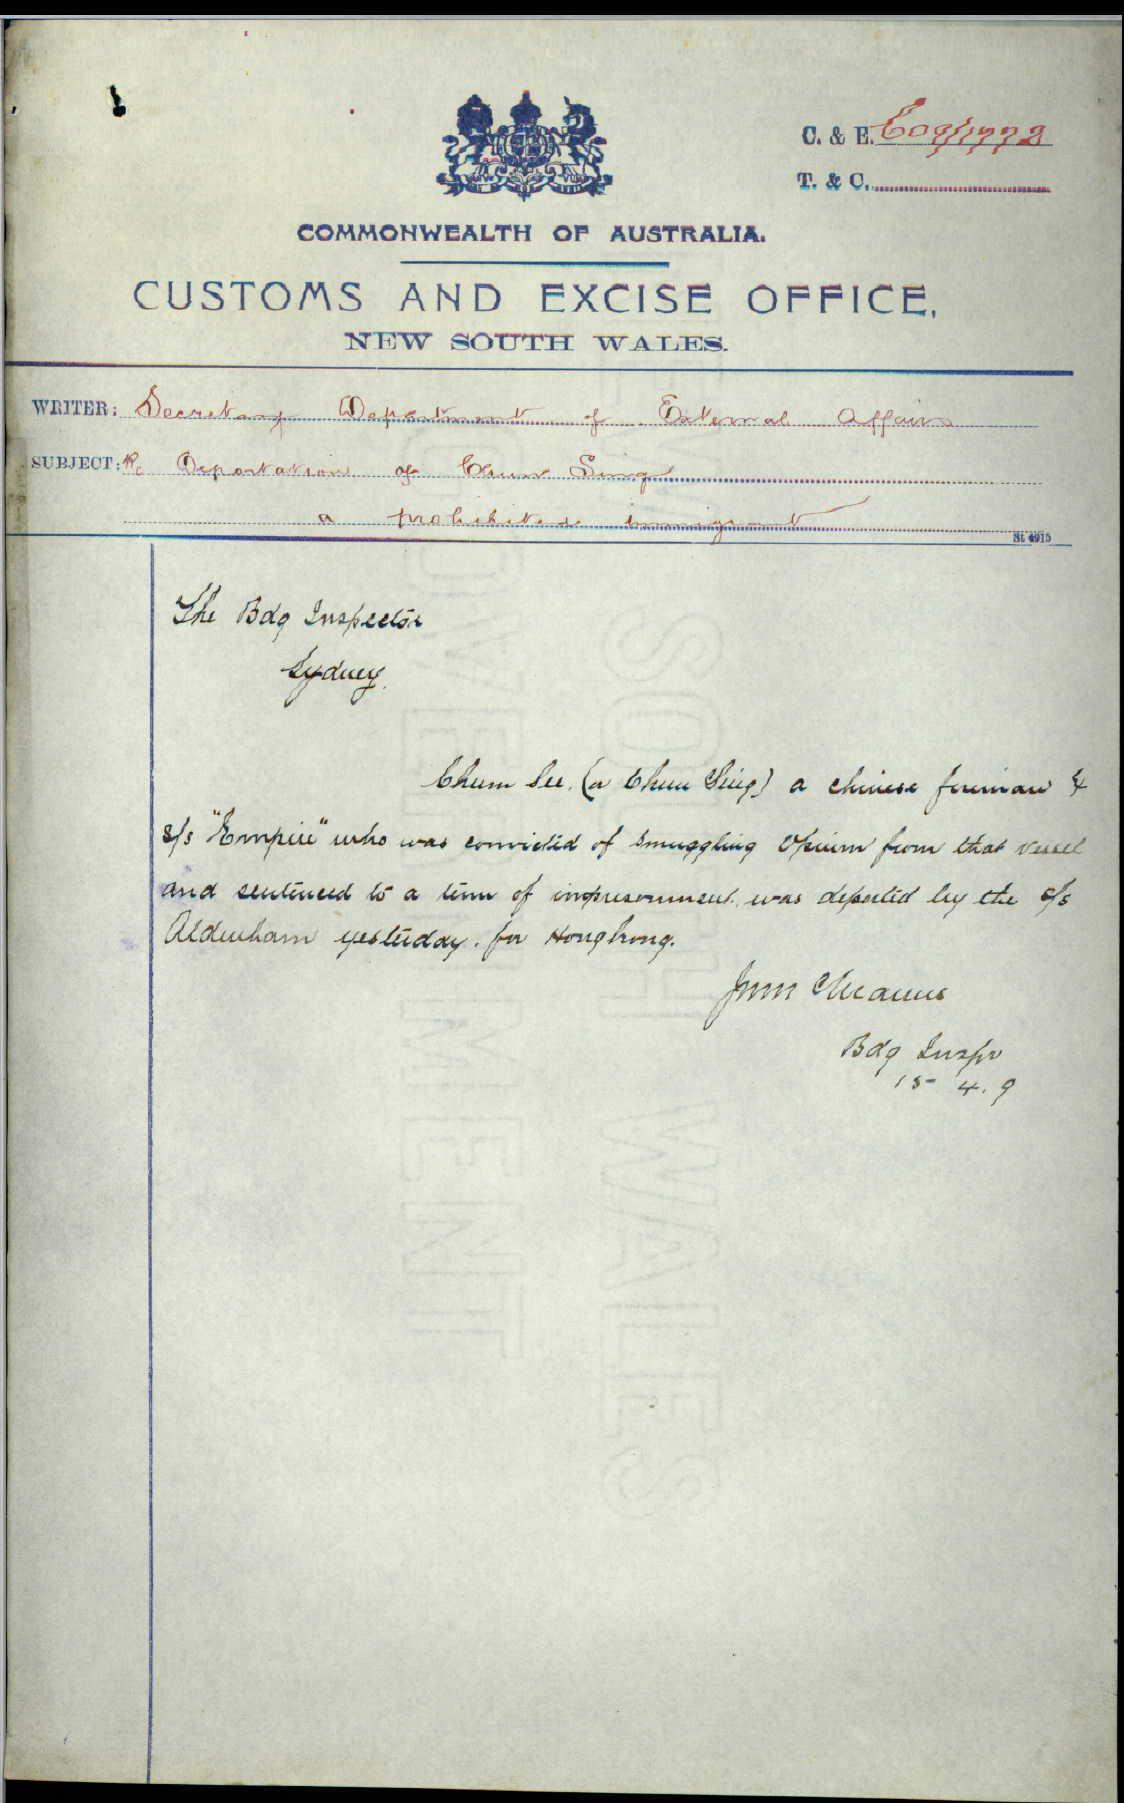 C. & E. C09/1772
T. & C.
COMMONWEALTH OF AUSTRALIA.
CUSTOMS AND EXCISE OFFICE,
NEW SOUTH WALES.
WRITER: Secretary Department of External Affairs
SUBJECT: Re Deportation of Chun Sing
a prohibited immigrant
St 4915
The Bdg Inspector
Sydney.
Chum See (or Chun Sing) a chinese fireman
s/s "Empire" who was convicted of smuggling Opium from that vessel
and sentenced to a term of imprisonment, was deported by the s/s
Aldenham yesterday. for Hongkong.
Bdg Inspr
15 4. 9
GOVERNMENT
SOUTH WALES